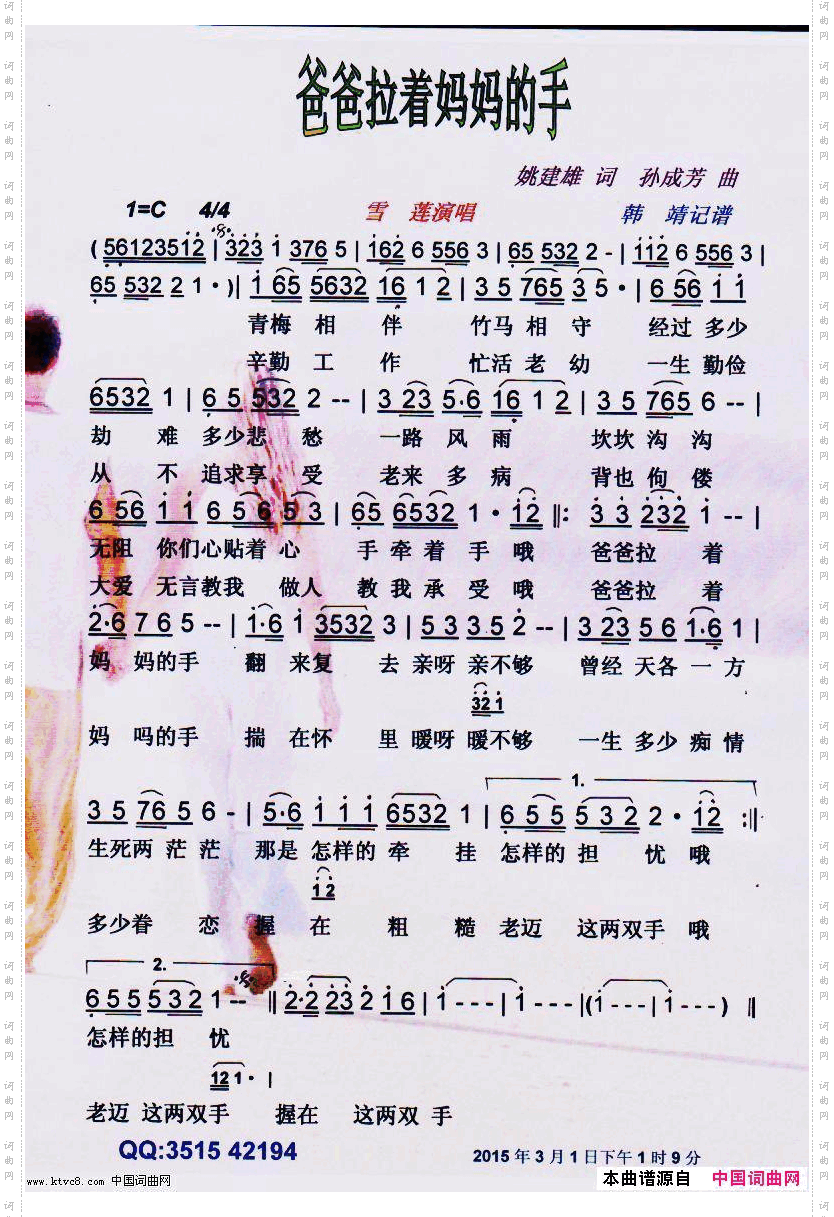 爸爸拉着妈妈的手
姚建雄 词 孙成芳 曲
1=C 4/4 雪 莲演唱 韩 靖记谱
( 56123512 | 323 1 376 5 | 162 6 556 3 | 65 532 2 - | 112 6 556 3 |
65 532 2 1 · )| 1 65 5632 16 1 2 | 3 5 765 3 5 · | 6 56 1 1
青梅 相 伴 竹马 相 守 经过 多少
辛勤 工 作 忙活 老 幼 一生 勤俭
6532 1 | 6 5 532 2 -- | 3 23 5·6 16 1 2 | 3 5 765 6 -- |
劫 难 多少悲 愁 一路 风 雨 坎坎 沟 沟
从 不 追求享 受 老来 多 病 背也 佝 偻
6 56 1 1 6 5 6 5 3 | 65 6532 1 · 12 ‖: 3 3 232 1 -- |
无阻 你们心贴着 心 手 牵 着 手 哦 爸爸拉 着
大爱 无言教我 做人 教 我 承 受 哦 爸爸拉 着
2·6 7 6 5 -- | 1·6 1 3532 3 | 5 3 3.5 2 -- | 3 23 5 6 1·6 1 |
妈 妈的手 翻 来复 去 亲呀 亲不够 曾经 天各 一 方
32 1
妈 吗的手 揣 在怀 里 暖呀 暖不够 一生 多少 痴 情
1.
3 5 76 5 6 - | 5·6 1 1 1 6532 1 | 6 5 5 5 3 2 2 · 12 :‖
生死两 茫 茫 那是 怎样的 牵 挂 怎样的 担 忧 哦
1 2
多少眷 恋 握 在 粗 糙 老迈 这两双手 哦
2.
6 5 5 5 3 2 1 -- ‖ 2·2 23 2 1 6 | 1 - - - | 1 - - - |(1 - - - | 1 - - - ) ‖
怎样的担 忧
12 1 · |
老迈 这两双手 握在 这两双 手
QQ:3515 42194 2015 年 3 月 1 日下午 1 时 9 分
www.ktvc8.com 中国词曲网 本曲谱源自 中国词曲网